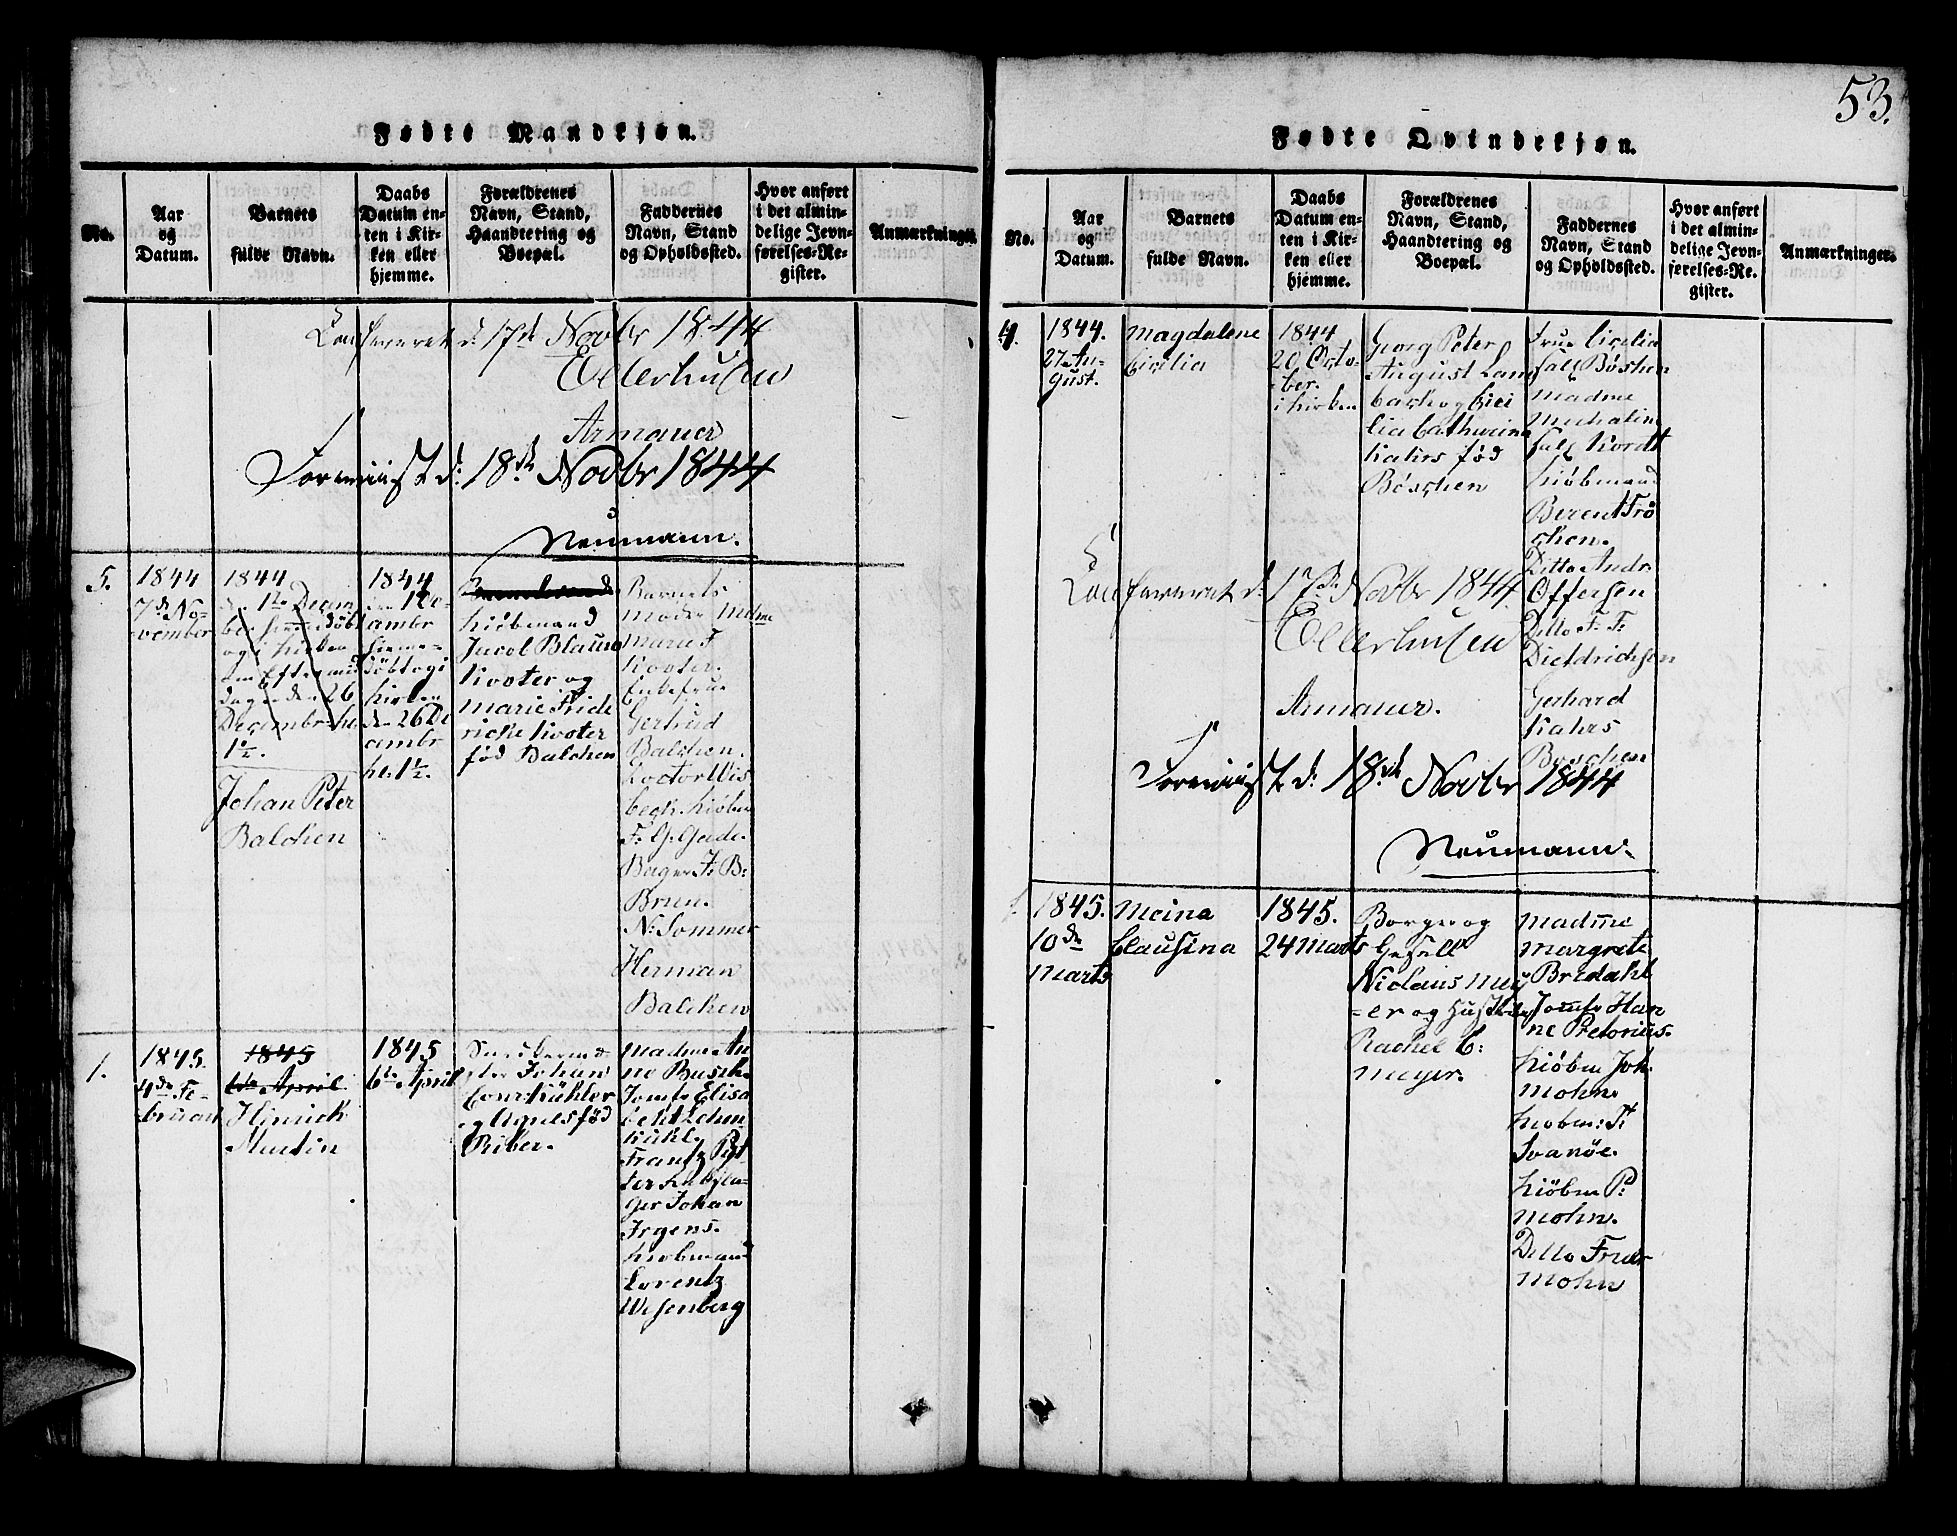 53.
Fødte Mandkjøn.
No.
Aar
og
Datum.
Barnets
fulde Navn.
Daabs
Datum en-
ten i Kir-
ken eller
hjemme.
Forældrenes
Navn, Stand,
Haandtering og
Boepæl.
Faddernes
Navn, Stand
og Opholdssted.
Hvor anført
i det almin-
delige Jevn-
førelses-Re-
gister.
Anmærkninger.
Confereret d: 17de Novbr 1844
Ellerhusen
Armauer
d: 18de Novbr 1844
Neumann.
5.
1844
7de No-
vember
1844
1ste Decem
ber
og i Kirken
Efter
dagen den 26
Decembr
1½.
Johan Peter
Balchen
1844
den 1 De-
cembr
hjemme-
døbt og i
Kirken
den 26 De
cembr
kl: 1½.
Kiøbmand
Jacob Blauw
Kroter og
Marie Fride
riche Kroter
fød Balchen
Barnets
Moder Mdme
Marie F
Kroter.
Enkefrue
Gertrud
Balchen.
Doctor Wis
begk. Kiøbm
F: G: Gade.
Bager J: B:
Brun.
N: Sommer
Herman
Balchen
1.
1845.
4de Fe-
bruari
1845
6te April
Hinrick
Martin
1845
6te April
Johan
Conr: Kühler
og Agnes fød
Riber.
Madme An
ne Busch.
Jomfr Elisa
beht Lehm
kühl.
Frantz
Johan
Irgens.
Kiobmand
Lorentz
Wesenberg
Fødte Qvindekjøn.
No.
Aar
og
Datum.
Barnets
fulde Navn.
Daabs
Datum en-
ten i Kir-
ken eller
hjemme.
Forældrenes
Navn, Stand,
Haandtering og
Boepæl.
Faddernes
Navn, Stand
og Opholdssted.
Hvor anført
i det almin-
delige Jevn-
førelses-Re-
gister.
Anmærkninger.
4.
1844.
27 Au-
gust.
Magdalene
Cicilia
1844
20 Octo-
ber.
i Kirken
Georg Peter
August Lam
bach og Cici
lia Catharina
Kahrs fød
Böschen
Frue Cicilia
Salg Böschen
Madme
Michaline
Salg Kordt
Kiöbmand
Berent Frö
chen.
Ditto Andr
Offersen
Ditto F: F:
Diedrichsen
Gerhard
Kahrs
Boschen
Confereret d: 17de Novbr 1844
Ellerhusen
Armauer.
d: 18de Novbr 1844
Neumann.
1.
1845.
10de
Marts
Meina
Clausina
1845.
24 Marts
Borger og
Gesell
Niclaus Mey
-er og Hustrue
Rachel C:
Meyer.
Madme
Margrete
Bredahl
Jomfr Han
ne Pretorius.
Kiöbm Joh.
Mohn.
Kiobm: F:
Svanöe.
Kiöbm P:
Mohn.
Ditto Fridr
Mohn